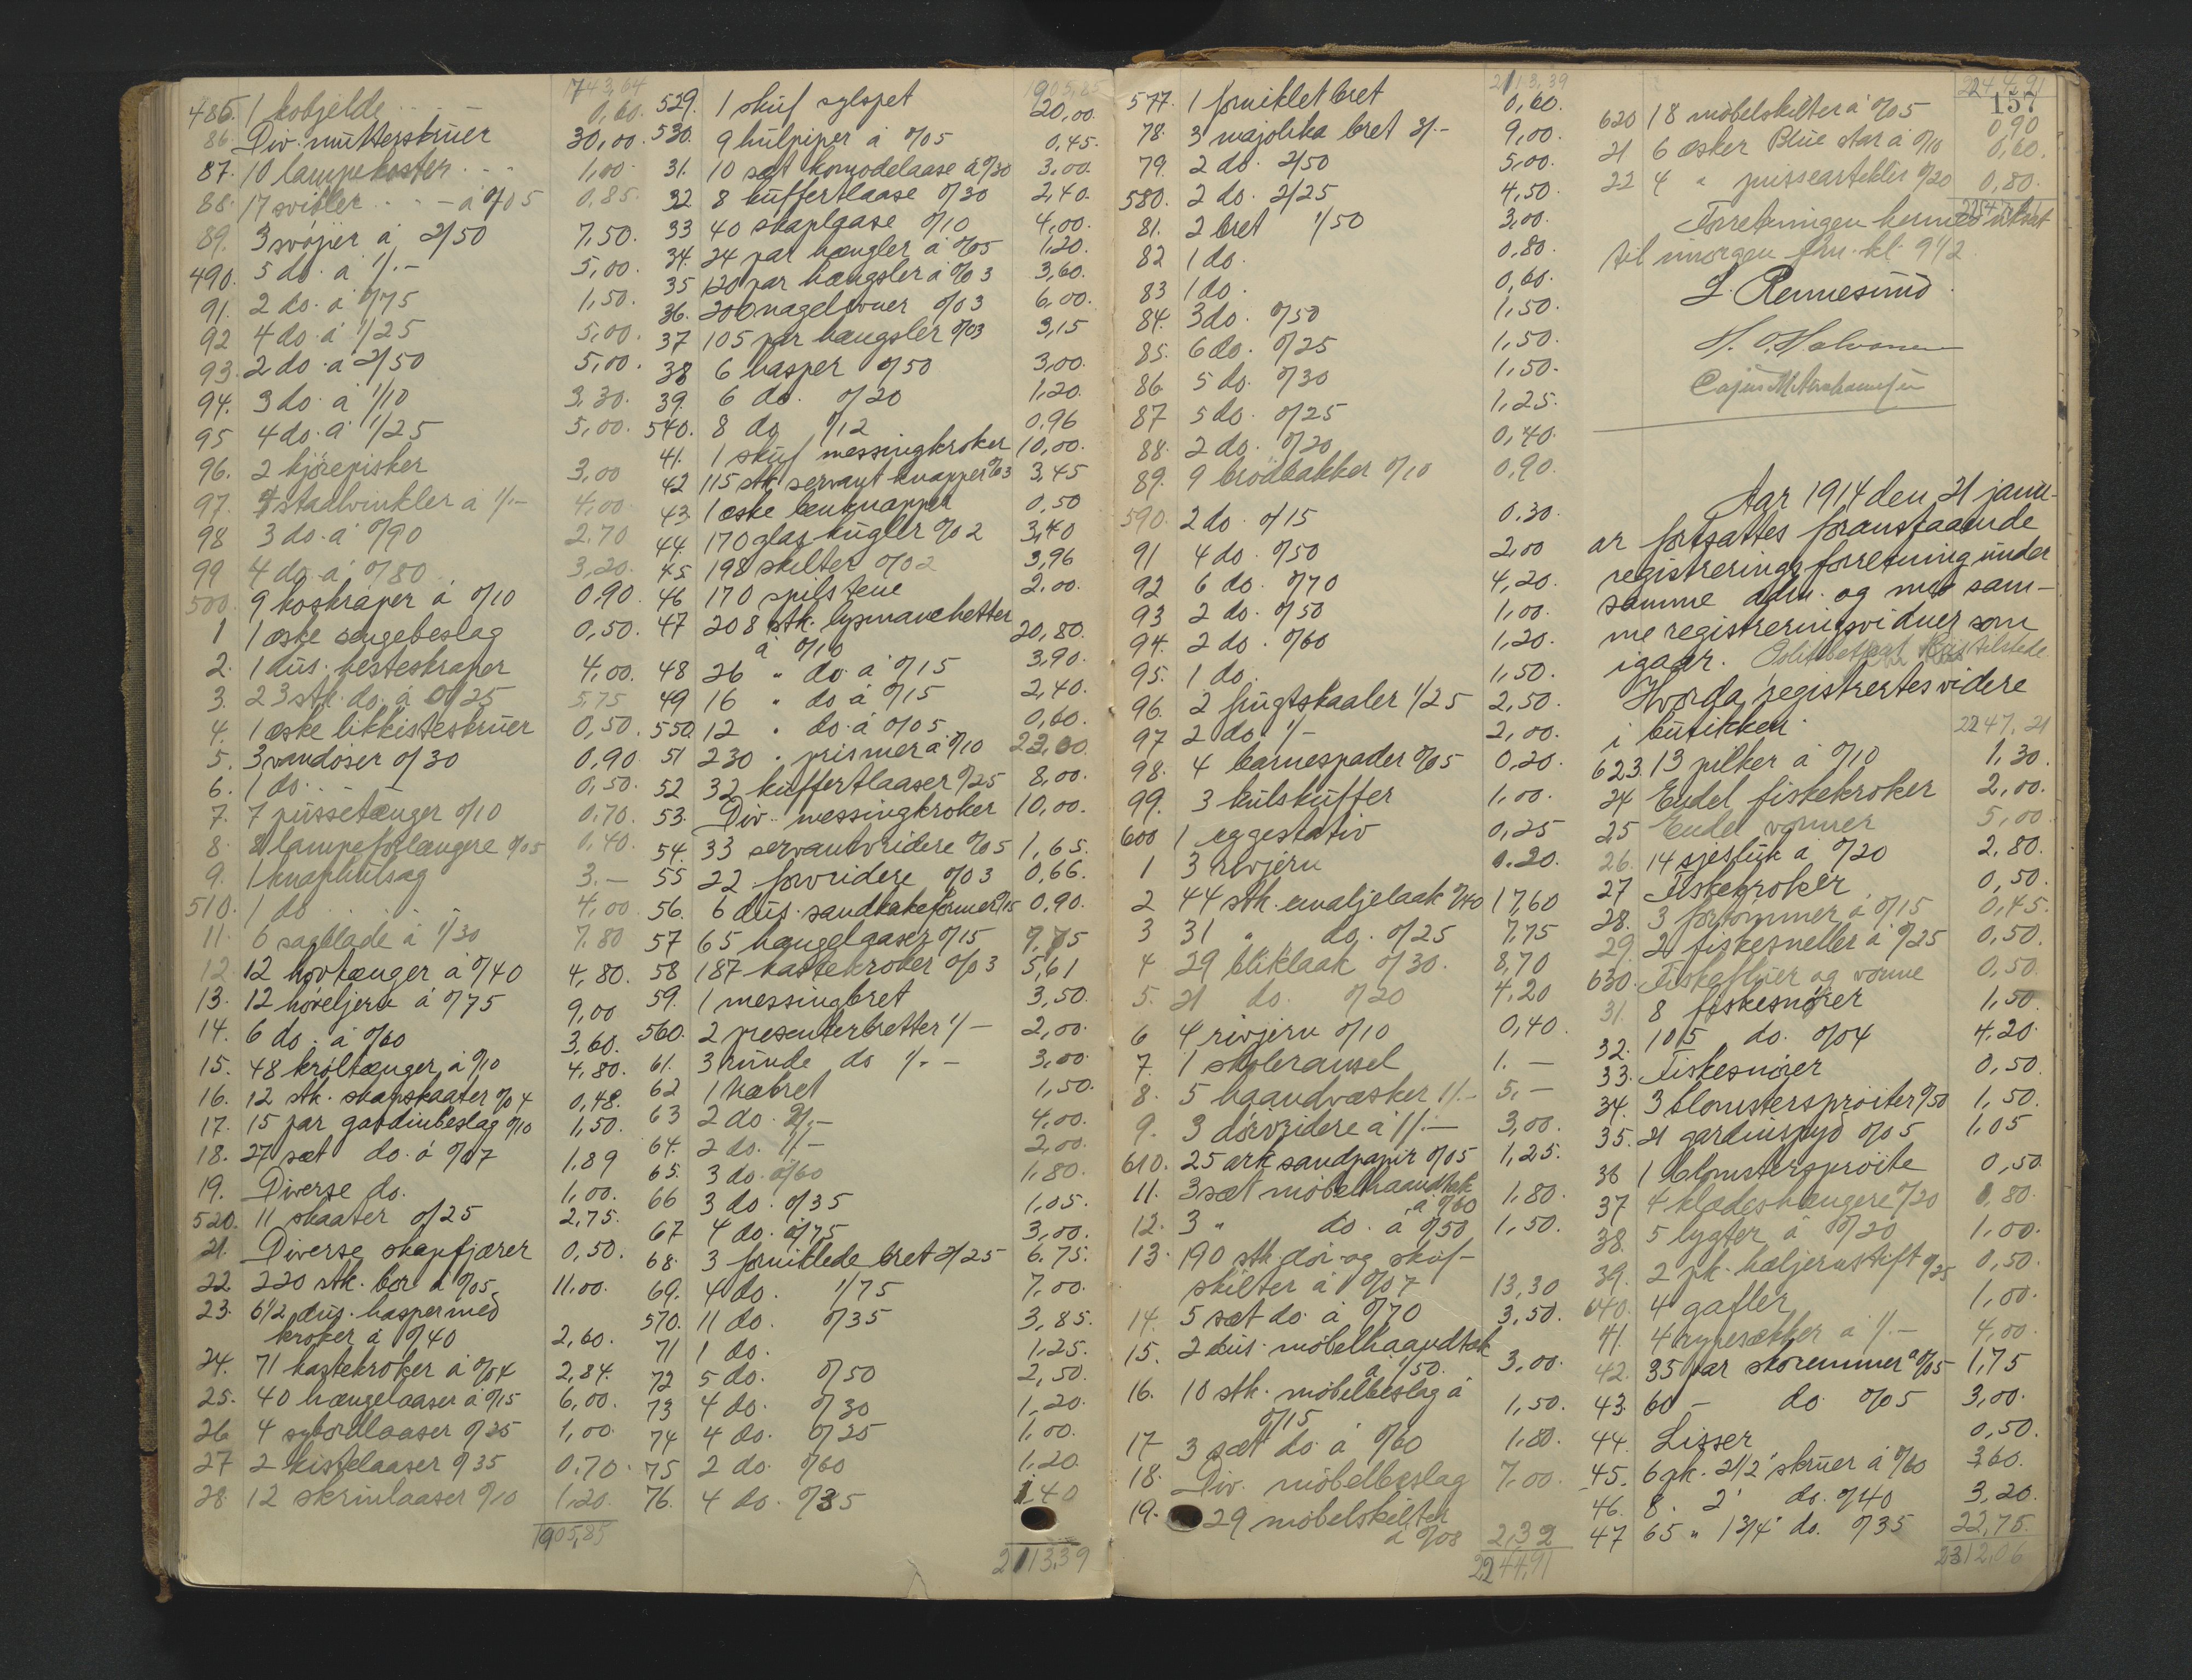 743,64
485. 1 kobjelde 0,60.
86. Div. mutterskruer 30,00.
87. 10 lampekoster 1,00.
88. 17 svibler à 0/05 0,85.
89. 3 svøper à 2/50 7,50.
490. 5 do. à 1/.- 5,00.
91. 2 do. à 0/75 1,50.
92 4 do. à 1/25 5,00.
93. 2 do. à 2/50 5,00.
94. 3 do. à 1/10 3,30.
95 4 do. à 1/25 5,00.
96. 2 kjørepisker 3,00
97. 4 staalvinkler à 1/.- 4,00
98 3 do. à 0/90 2,70
99 4 do. à 0/80 3,20.
500. 9 koskraper à 0/10 0,90
1 1 æske sengebeslag 0,50.
2. 1 dus. hesteskraper 4,00.
3. 23 stk. do. à 0/25 5,75
4. 1 æske likkisteskruer 0,50.
5. 3 vandøser 0/30 0,90
6. 1 do. 0,50.
7. 7 pussetænger 0/10 0,70.
8. 8 lampeforlængere 0/05 0,40.
9. 1 knaphulsag 3.—
510. 1 do 4,00
11. 6 sagblade à 1/30 7,80
12 12 hovtænger à 0/40 4,80.
13. 12 høveljern à 0/75 9,00
14. 6 do. à 0/60 3,60.
15. 48 krøltænger à 0/10 4,80.
16. 12 stk. skapskaater 0/04 0,48.
17. 15 par gardinbeslag 0/10 1,50.
18. 27 sæt do. à 0/07 1,89
19. Diverse do. 1,00.
520. 11 skaater 0/25 2,75.
21. Diverse skapfjærer 0,50.
22. 220 stk. bor à 0/05 11,00.
23. 6 1/2 dus. hasper med
kroker à 0/40 2,60.
24. 71 kastekroker à 0/04 2,84.
25. 40 hængelaaser à 0/15 6,00.
26 4 sybordlaaser 0/25 1,00.
27 2 kistelaaser 0/35 0,70.
28. 12 skrinlaaser 0/10 1,20.
1905,85
1905,85
529. 1 skuf sylspet 20,00.
530. 9 hulpiper à 0/05 0,45.
31. 10 sæt komodelaase à 0/30 3,00.
32 8 kuffertlaase 0/30 2,40.
33 40 skaplaase 0/10 4,00.
34. 24 par hængler à 0/05 1,20.
35 120 par hængsler à 0/03 3,60.
36. 200 nagelovner 0/03 6,00.
37 105 par hængsler 0/03 3,15
38 6 hasper 0/50 3,00.
39. 6 do. 0/20 1,20.
540. 8 do 0/12 0,96
41. 1 skuf messingkroker 10,00.
42 115 stk. servant knapper 0/03 3,45
43 1 æske benknapper 0,50
44. 170 glaskugler 0/02 3,40
45 198 skilter 0/02 3,96
46 170 spilstene 2,00.
47 208 stk. lysmanchetter
à 0/10 20,80.
48 26 " do à 0/15 3,90.
49 16 " do à 0/15 2,40.
550. 12 " do. à 0/05 0,60.
51 230 " prismer à 0/10 23,00.
52 32 kuffertlaaser 0/25 8,00.
53. Div. messingkroker 10,00.
54. 33 servantvridere 0/05 1,65.
55 22 forvridere 0/03 0,66.
56. 6 dus. sandkakeformer 0/15 0,90.
57 65 hængelaaser 0/15 9,75
58 187 kastekroker 0/03 5,61
59. 1 messingbret 3,50.
560. 2 presenterbretter 1/- 2,00.
61. 3 runde do 1/.- 3,00.
62 1 træbret 1,50.
63 2 do. 2/.- 4,00.
64. 2 do. 1/- 2,00.
65. 3 do. 0/60 1,80.
66 3 do. 0/35 1,05.
67 4 do. 0/75 3,00.
68. 3 forniklede bret 2/25 6.75.
69. 4 do. 1/75 7,00.
570. 11 do. 0/35 3,85.
71 1 do. 1,25.
72 5 do. 0/50 2,50.
73 4 do. 0/30 1,20.
74 4 do. 0/25 1,00.
75 2 do. 0/60 1,20.
76. 4 do. 0/35 1,40
2113,39
2113,39
577. 1 forniklet bret 0,60.
78. 3 majolika bret 3/.- 9,00.
79. 2 do. 2/50 5,00.
580. 2 do. 2/25 4,50.
81. 2 bret 1/50 3,00.
82 1 do. 0,80.
83 1 do. 0,60.
84. 3 do. 0/50 1,50.
85. 6 do. 0/25 1,50.
86 5 do. 0/30 1,50.
87 5 do. 0/25 1,25.
88. 2 do. 0/20 0,40.
89. 9 brødbakker 0/10 0,90.
590. 2 do. 0/15 0,30.
91 4 do. 0/50 2,00
92 6 do. 0/70 4,20.
93 2 do. 0/50 1,00.
94. 2 do. 0/60 1,20.
95. 1 do. 1,50.
96. 2 frugtskaaler 1/25 2,50.
97 2 do. 1/- 2,00.
98. 4 barnespader 0/05 0,20.
99. 3 kulskuffer 1,00.
600 1 eggestativ 0,25
1 3 rivjern 0.20.
2 44 stk. emaljelaak 0/40 17,60
3 31 " do. 0/25 7,75
4 29 bliklaak 0/30. 8,70
5. 21 do. 0/20 4.20
6 4 rivjern 0/10 0,40.
7. 1 skoleransel 1.—
8. 5 haandvæsker 1/.- 5,—
9. 3 dørvridere à 1/.— 3,00.
610. 25 ark sandpapir 0/05 1,25.
11. 3 sæt møbelhaandtak
à 0/60 1,80.
12. 3 " do. à 0/50 1,50.
13. 190 stk. dør og skuf-
skilter à 0/07 13,30
14. 5 sæt do. à 0/70 3,50.
15. 2 dus. møbelhaandtak
à 1/50. 3,00.
16. 10 stk. møbelbeslag à
0/15 1,50.
17 3 sæt do à 0/60 1.80.
18. Div. møbelbeslag 7.00.
19. 29 møbelskilter
à 0/08 2,32
2244,91
2244,91
157
620 18 møbelskilter à 0/05 0,90
21 6 æsker Blue star à 0/10 0,60.
22 4 " pusseartikler 0/20 0,80.
2247,21
Forretningen hermed utsat
til imorgen fm. kl. 9 1/2.
L. Rennesund.
H. O. Halvorsen
Aar 1914 den 21 janu-
ar fortsattes foranstaaende
registreringsforretning under
samme adm. og med sam-
me registreringsvidner som
igaar. tilstede
Hvorda registrertes videre
i butikken. 2247,21
623. 13 pilker à 0/10 1,30.
24 Endel fiskekroker 2,00.
25 Endel vormer 5,00.
26. 14 sjesluk à 0/20 2,80.
27 Fiskekroker 0,50.
28. 3 fortommer à 0/15 0,45.
29. 2 fiskesneller à 0/25 0,50.
630. Fiskefluer og vorme 0,50.
31. 8 fiskesnører 1,50.
32. 105 do. 0/04 4.20.
33. Fiskesnører 0,50
34. 3 blomstersprøiter 0/50 1,50.
35. 21 gardinspyd 0/05 1,05
36 1 blomstersprøite 0,50.
37 4 klædeshængere 0/20 0,80.
38. 5 lygter à 0/20 1,00.
39. 2 pk. hæljernstift 0/25 0,50.
640. 4 gafler 1,00.
41. 4 rypesækker à 1/.- 4,00.
42. 35 par skoremmer à 0/05 1,75
43. 60 - do 0/05 3,00.
44. Lisser 0,50.
45. 6 pk. 2 1/2" skruer à 0/60 3,60.
46. 8. 2" do. 0/40 3,20.
47 65 " 1 3/4" do. 0/35 22,75.
2312,06